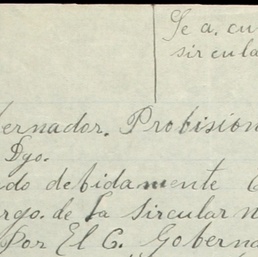 Se a. cu
sircula
bernador. Probision
Dgo.
do debidamente
rgo. de la sircular n
Por El C. Goberna